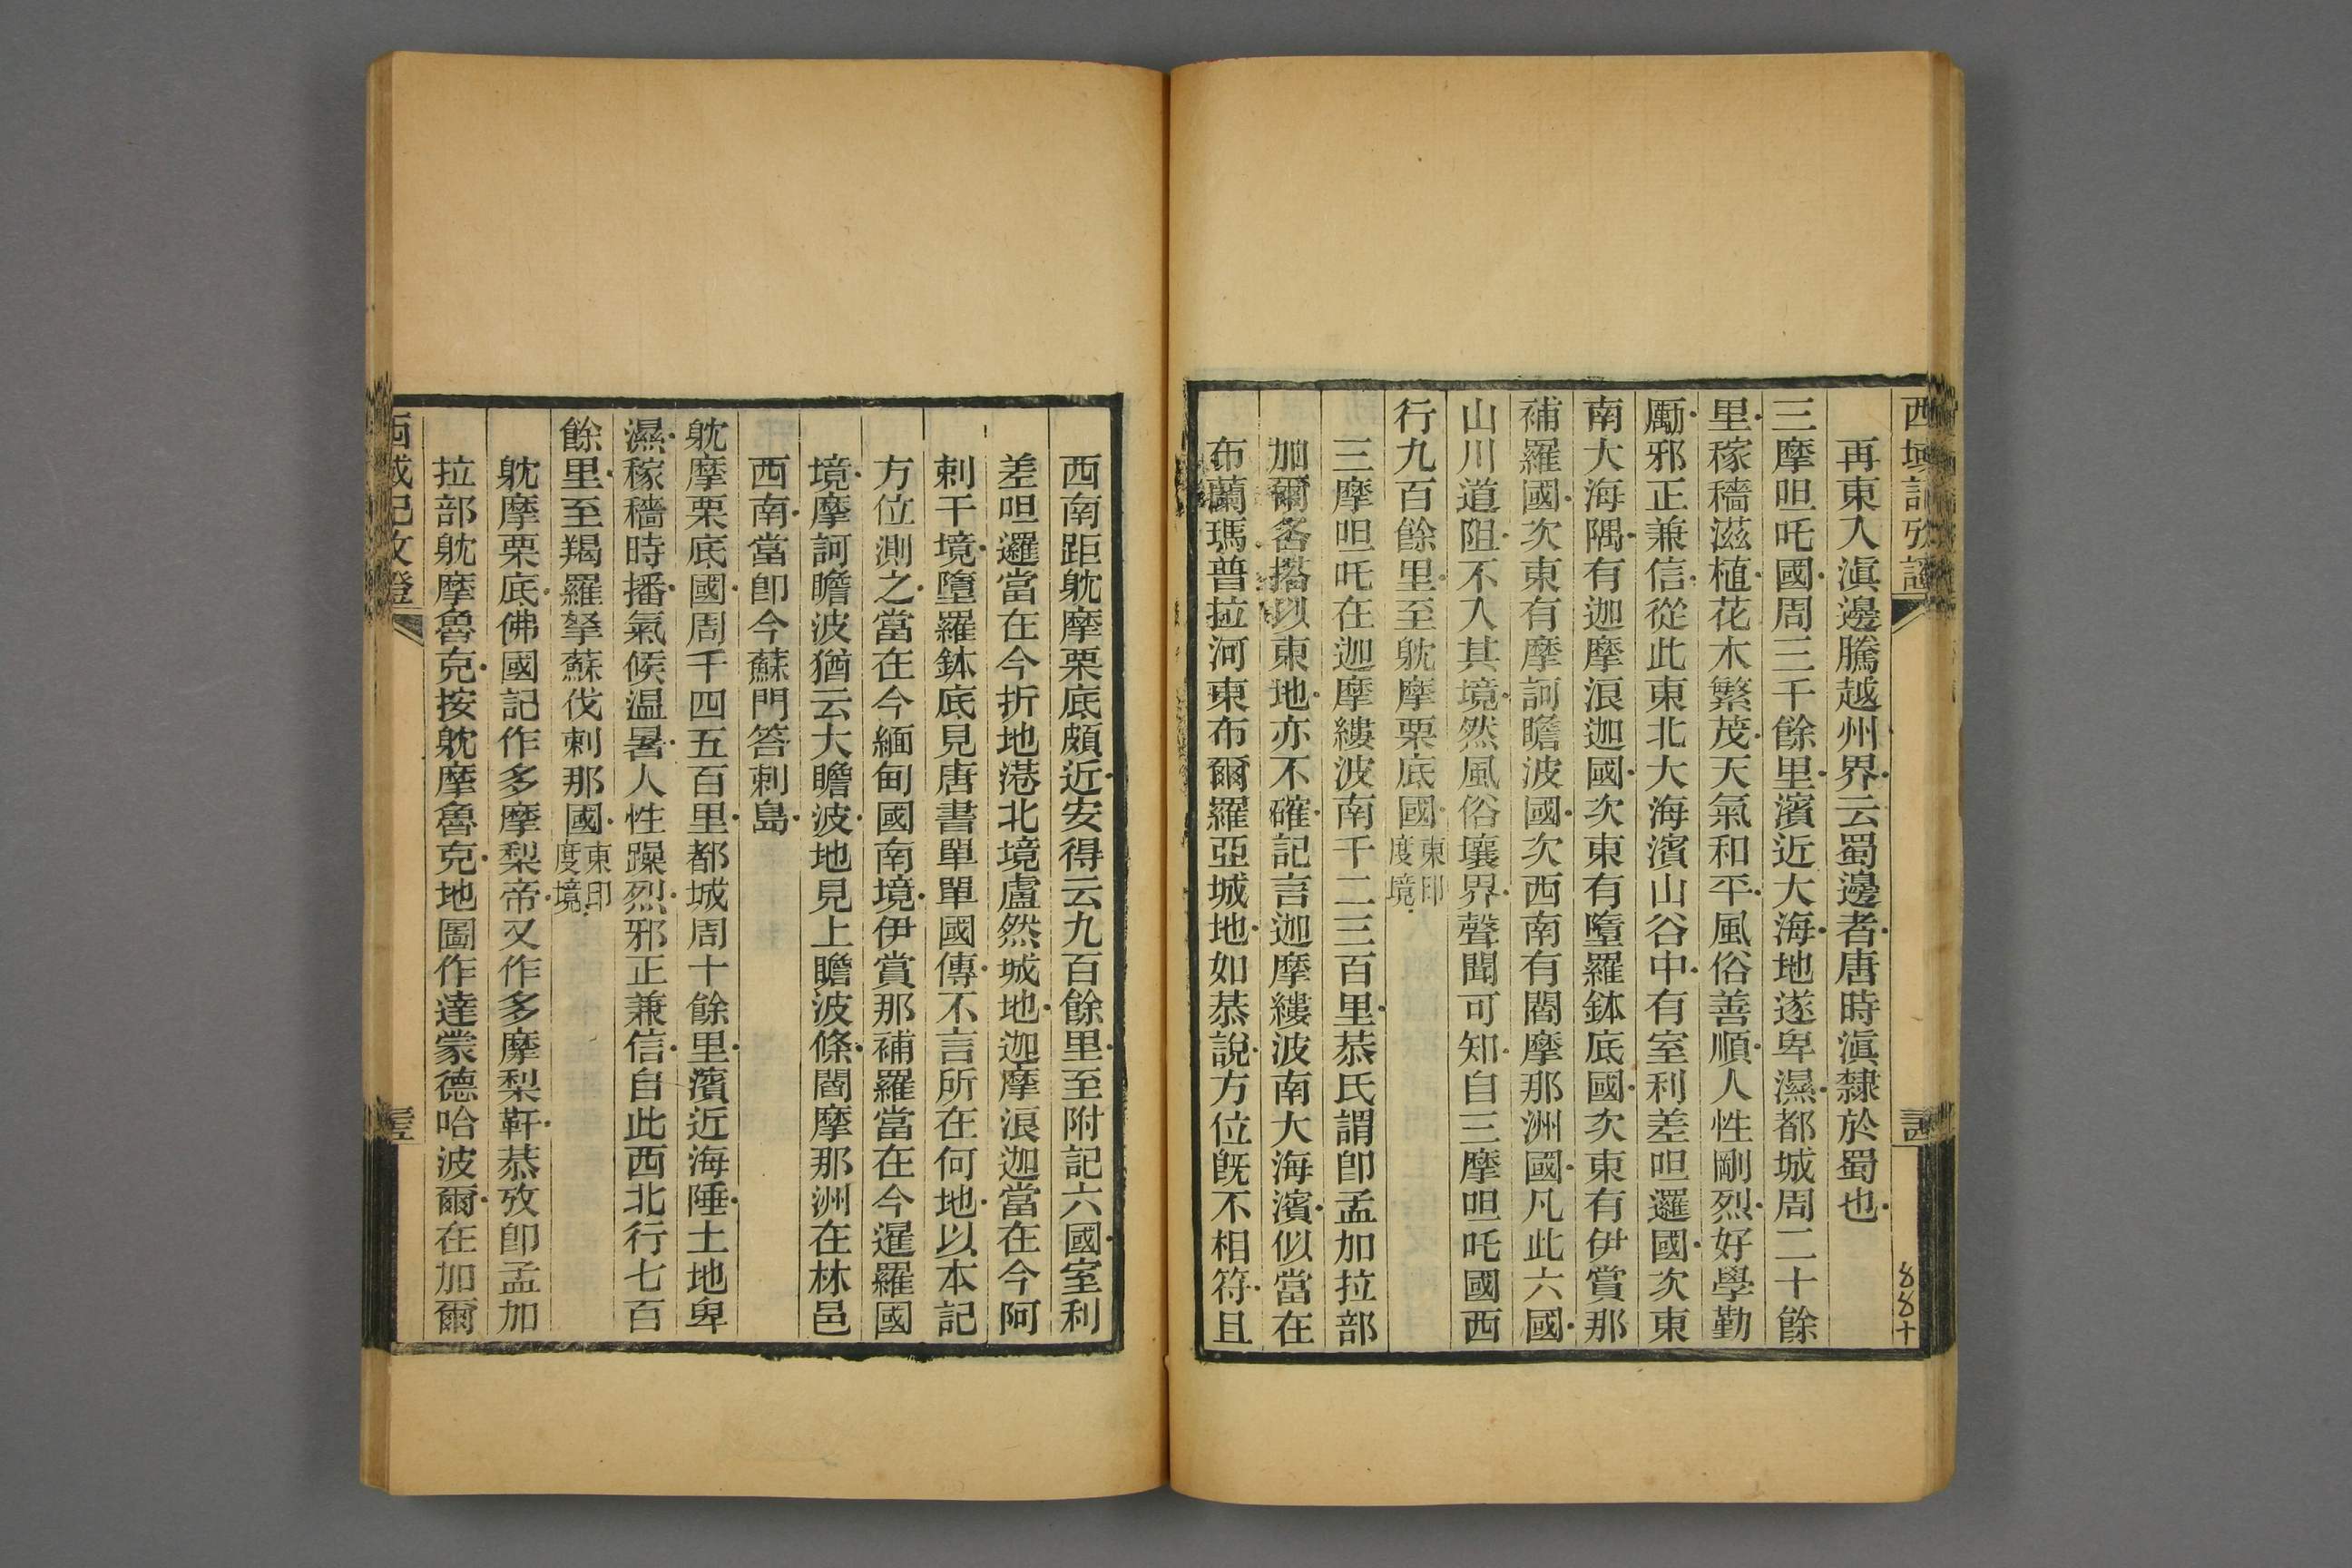 西域記攷證
再東入滇邊騰越州界云蜀邊者唐時滇隸於蜀也
三摩呾吒國周三千餘里濱近大海地遂卑濕都城周二十餘
里稼穡滋植花木繁茂天氣和平風俗善順人性剛烈好學勤
勵邪正兼信從此東北大海濱山谷中有室利差呾邏國次東
南大海隅有迦摩浪迦國次東有墮羅鉢底國次東有伊賞那
補羅國次東有摩訶瞻波國次西南有閻摩那洲國凡此六國
山川道阻不入其境然風俗壤界聲聞可知自三摩呾吒國西
行九百餘里至躭摩栗底國東印度境
三摩呾吒在迦摩縷波南千二三百里恭氏謂卽孟加拉部
加爾各搭以東地亦不確記言迦摩縷波南大海濱似當在
布蘭瑪普拉河東布爾羅亞城地如恭說方位旣不相符且
西南距躭摩栗底頗近安得云九百餘里至附記六國室利
差呾邏當在今折地港北境盧然城地迦摩浪迦當在今阿
剌干境墮羅鉢底見唐書單單國傳不言所在何地以本記
方位測之當在今緬甸國南境伊賞那補羅當在今暹羅國
境摩訶瞻波猶云大瞻波地見上瞻波條閻摩那洲在林邑
西南當卽今蘇門答剌島
躭摩栗底國周千四五百里都城周十餘里濱近海陲土地卑
濕稼穡時播氣候温暑人性躁烈邪正兼信自此西北行七百
餘里至羯羅拏蘇伐剌那國東印度境
躭摩栗底佛國記作多摩梨帝又作多摩梨靬恭攷卽孟加
拉部躭摩魯克按躭摩魯克地圖作達蒙德哈波爾在加爾
西域記攷證